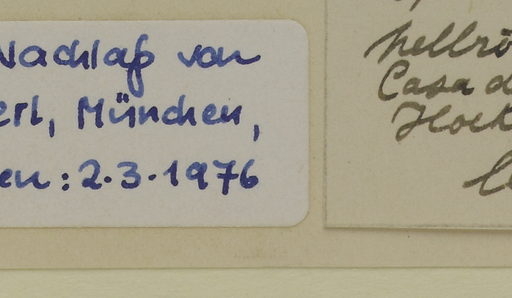 Nachlaß von
erl, München,
en: 2.3.1976
hellrö
Casa d
Hock